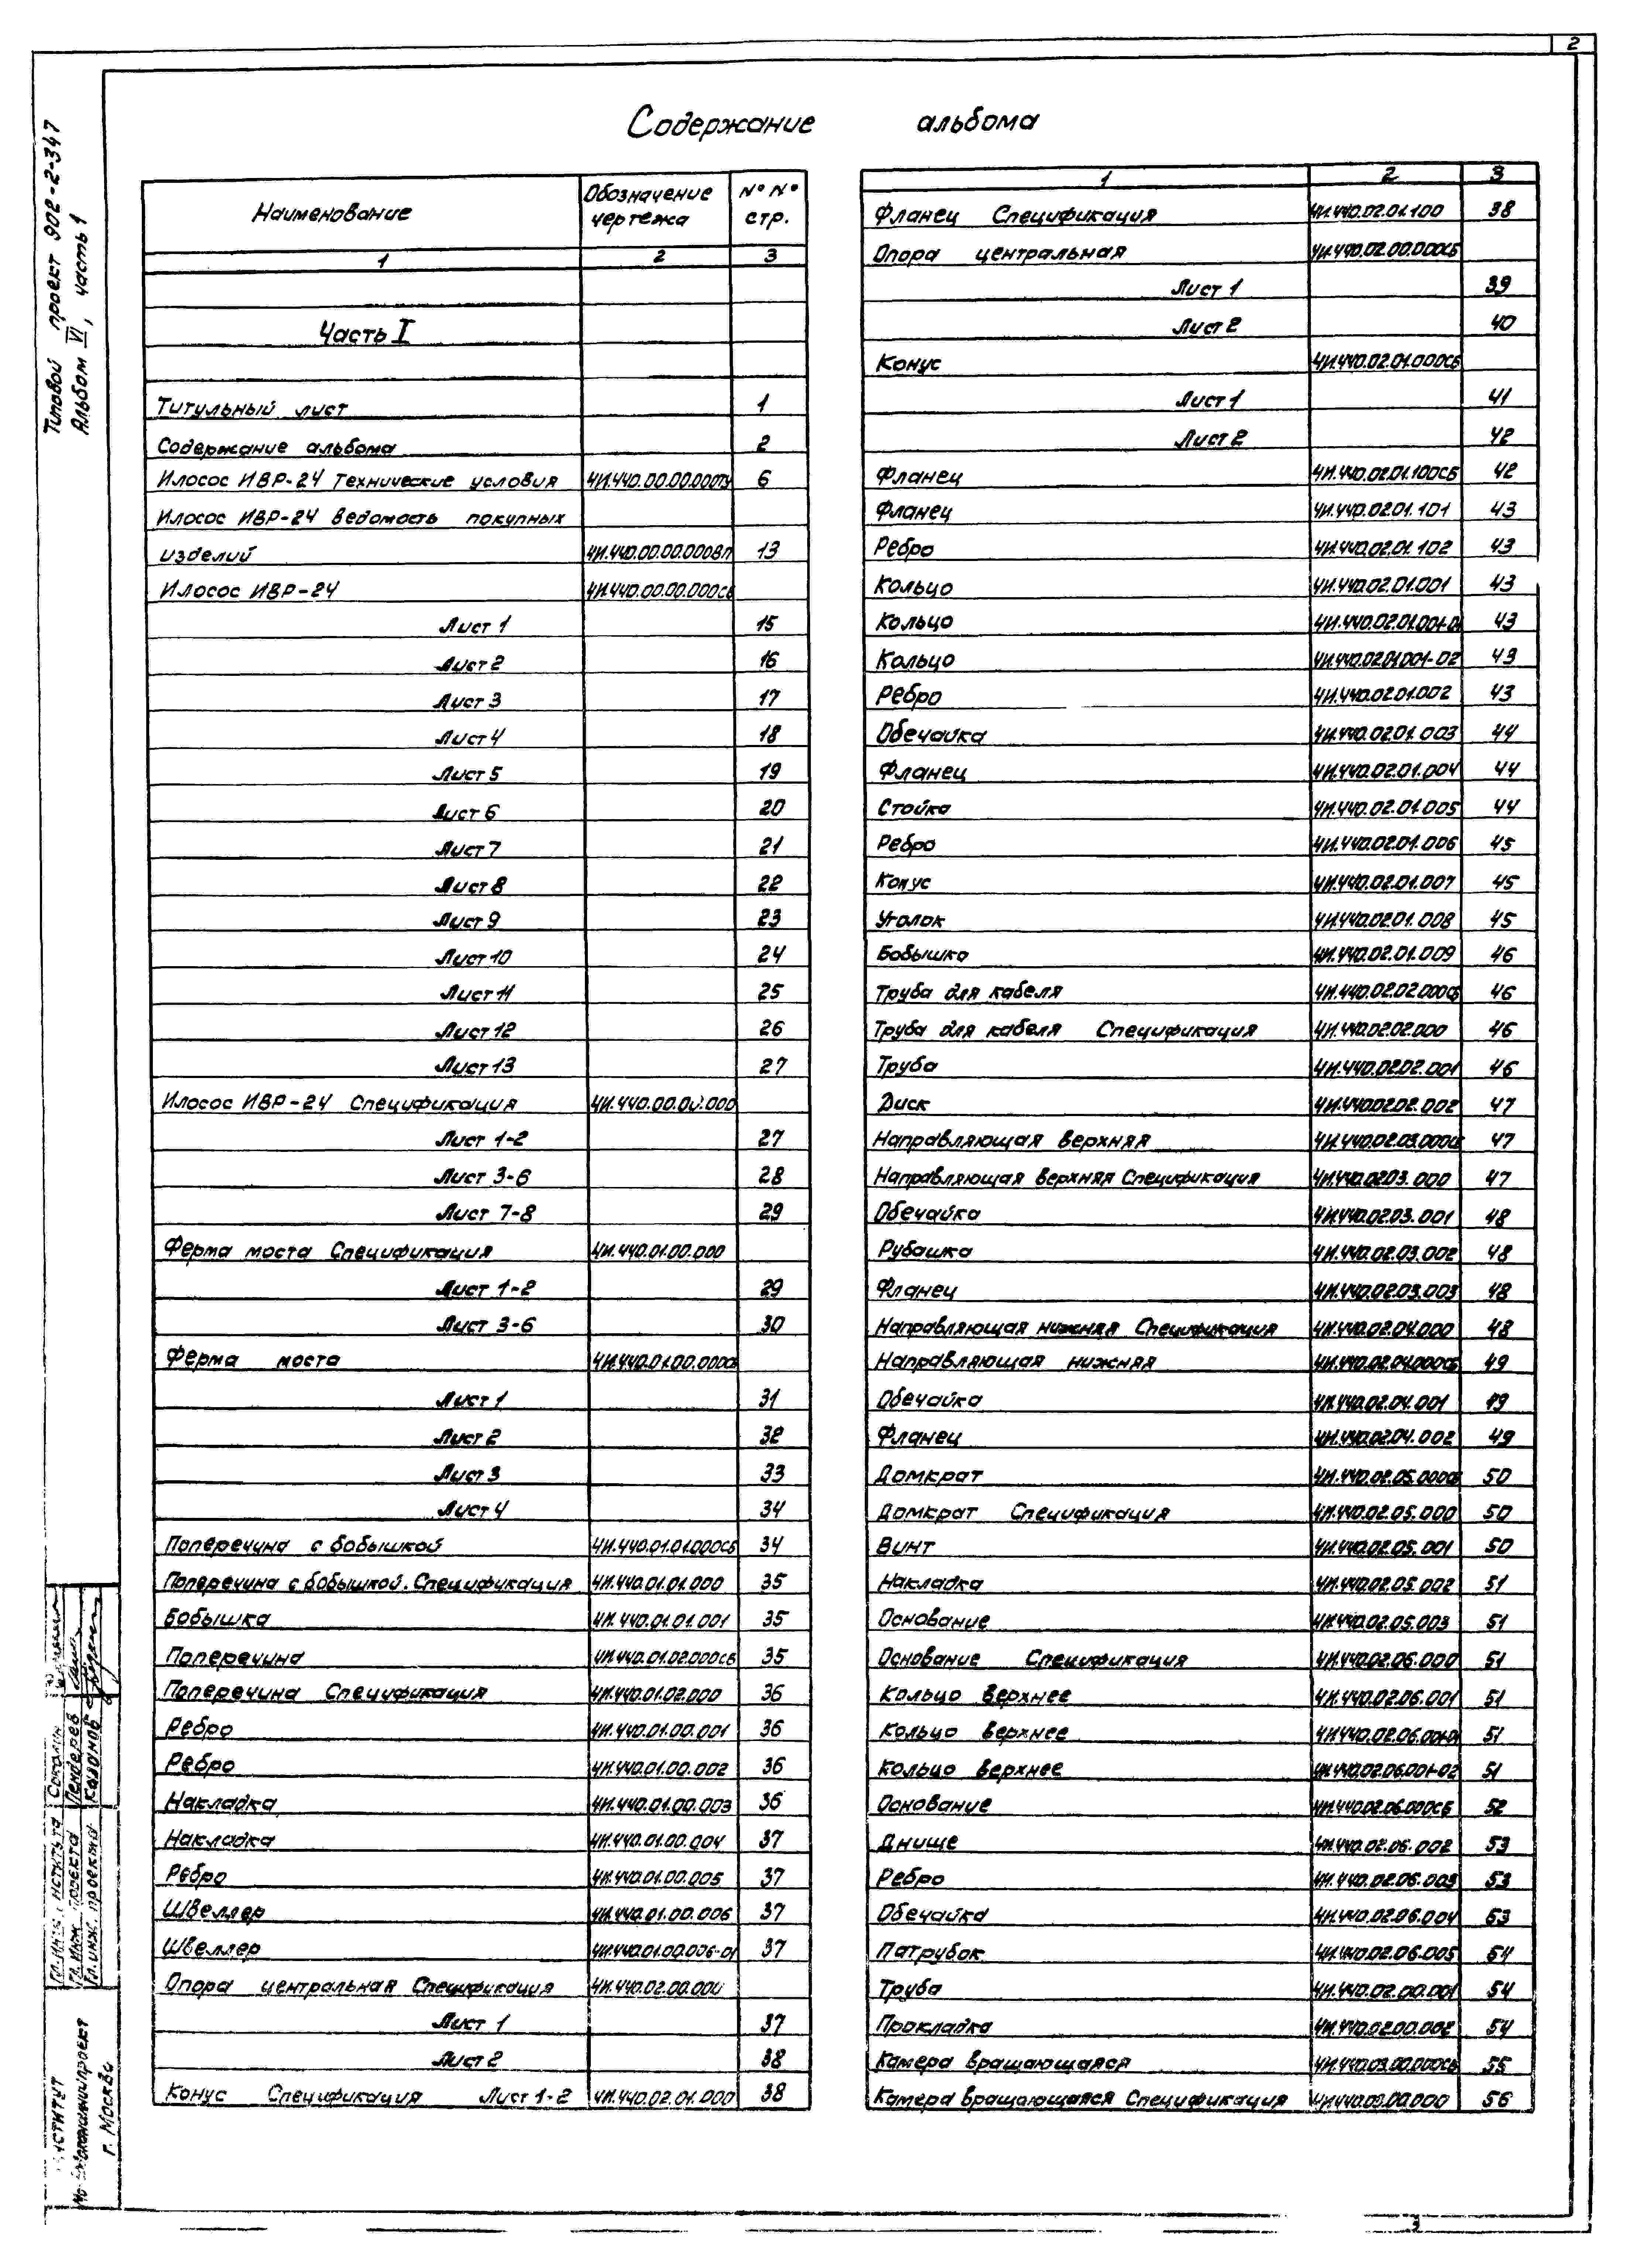 2
Содержание альбома
Типовой проект 902-2-347
Альбом VI, часть 1
Наименование Обозначение чертежа №№ стр.
1 2 3
Часть I
Титульный лист 1
Содержание альбома 2
Илосос ИВР-24 Технические условия 4И.440.00.00.000ТУ 6
Илосос ИВР-24 Ведомость покупных
изделий 4И.440.00.00.000ВП 13
Илосос ИВР-24 4И.440.00.00.000СБ
Лист 1 15
Лист 2 16
Лист 3 17
Лист 4 18
Лист 5 19
Лист 6 20
Лист 7 21
Лист 8 22
Лист 9 23
Лист 10 24
Лист 11 25
Лист 12 26
Лист 13 27
Илосос ИВР-24 Спецификация 4И.440.00.00.000
Лист 1-2 27
Лист 3-6 28
Лист 7-8 29
Ферма моста Спецификация 4И.440.01.00.000
Лист 1-2 29
Лист 3-6 30
Ферма моста 4И.440.01.00.000СБ
Лист 1 31
Лист 2 32
Лист 3 33
Лист 4 34
Поперечина с бобышкой 4И.440.01.01.000СБ 34
Поперечина с бобышкой. Спецификация 4И.440.01.01.000 35
Бобышка 4И.440.01.01.001 35
Поперечина 4И.440.01.02.000СБ 35
Поперечина Спецификация 4И.440.01.02.000 36
Ребро 4И.440.01.00.001 36
Ребро 4И.440.01.00.002 36
Накладка 4И.440.01.00.003 36
Накладка 4И.440.01.00.004 37
Ребро 4И.440.01.00.005 37
Швеллер 4И.440.01.00.006 37
Швеллер 4И.440.01.00.006-01 37
Опора центральная Спецификация 4И.440.02.00.000
Лист 1 37
Лист 2 38
Конус Спецификация Лист 1-2 4И.440.02.01.000 38
1 2 3
Фланец Спецификация 4И.440.02.01.100 38
Опора центральная 4И.440.02.00.000СБ
Лист 1 39
Лист 2 40
Конус 4И.440.02.01.000СБ
Лист 1 41
Лист 2 42
Фланец 4И.440.02.01.100СБ 42
Фланец 4И.440.02.01.101 43
Ребро 4И.440.02.01.102 43
Кольцо 4И.440.02.01.001 43
Кольцо 4И.440.02.01.001-01 43
Кольцо 4И.440.02.01.001-02 43
Ребро 4И.440.02.01.002 43
Обечайка 4И.440.02.01.003 44
Фланец 4И.440.02.01.004 44
Стойка 4И.440.02.01.005 44
Ребро 4И.440.02.01.006 45
Конус 4И.440.02.01.007 45
Уголок 4И.440.02.01.008 45
Бобышка 4И.440.02.01.009 46
Труба для кабеля 4И.440.02.02.000СБ 46
Труба для кабеля Спецификация 4И.440.02.02.000 46
Труба 4И.440.02.02.001 46
Диск 4И.440.02.02.002 47
Направляющая верхняя 4И.440.02.03.000СБ 47
Направляющая верхняя Спецификация 4И.440.02.03.000 47
Обечайка 4И.440.02.03.001 48
Рубашка 4И.440.02.03.002 48
Фланец 4И.440.02.03.003 48
Направляющая нижняя Спецификация 4И.440.02.04.000 48
Направляющая нижняя 4И.440.02.04.000СБ 49
Обечайка 4И.440.02.04.001 49
Фланец 4И.440.02.04.002 49
Домкрат 4И.440.02.05.000СБ 50
Домкрат Спецификация 4И.440.02.05.000 50
Винт 4И.440.02.05.001 50
Накладка 4И.440.02.05.002 51
Основание 4И.440.02.05.003 51
Основание Спецификация 4И.440.02.06.000 51
Кольцо верхнее 4И.440.02.06.001 51
Кольцо верхнее 4И.440.02.06.001-01 51
Кольцо верхнее 4И.440.02.06.001-02 51
Основание 4И.440.02.06.000СБ 52
Днище 4И.440.02.06.002 53
Ребро 4И.440.02.06.003 53
Обечайка 4И.440.02.06.004 53
Патрубок 4И.440.02.06.005 54
Труба 4И.440.02.00.001 54
Прокладка 4И.440.02.00.002 54
Камера вращающаяся 4И.440.03.00.000СБ 55
Камера вращающаяся Спецификация 4И.440.03.00.000 56
Соколин
Гл. инж. проекта Пендерев
Гл. инж. проекта
г. Москва
3